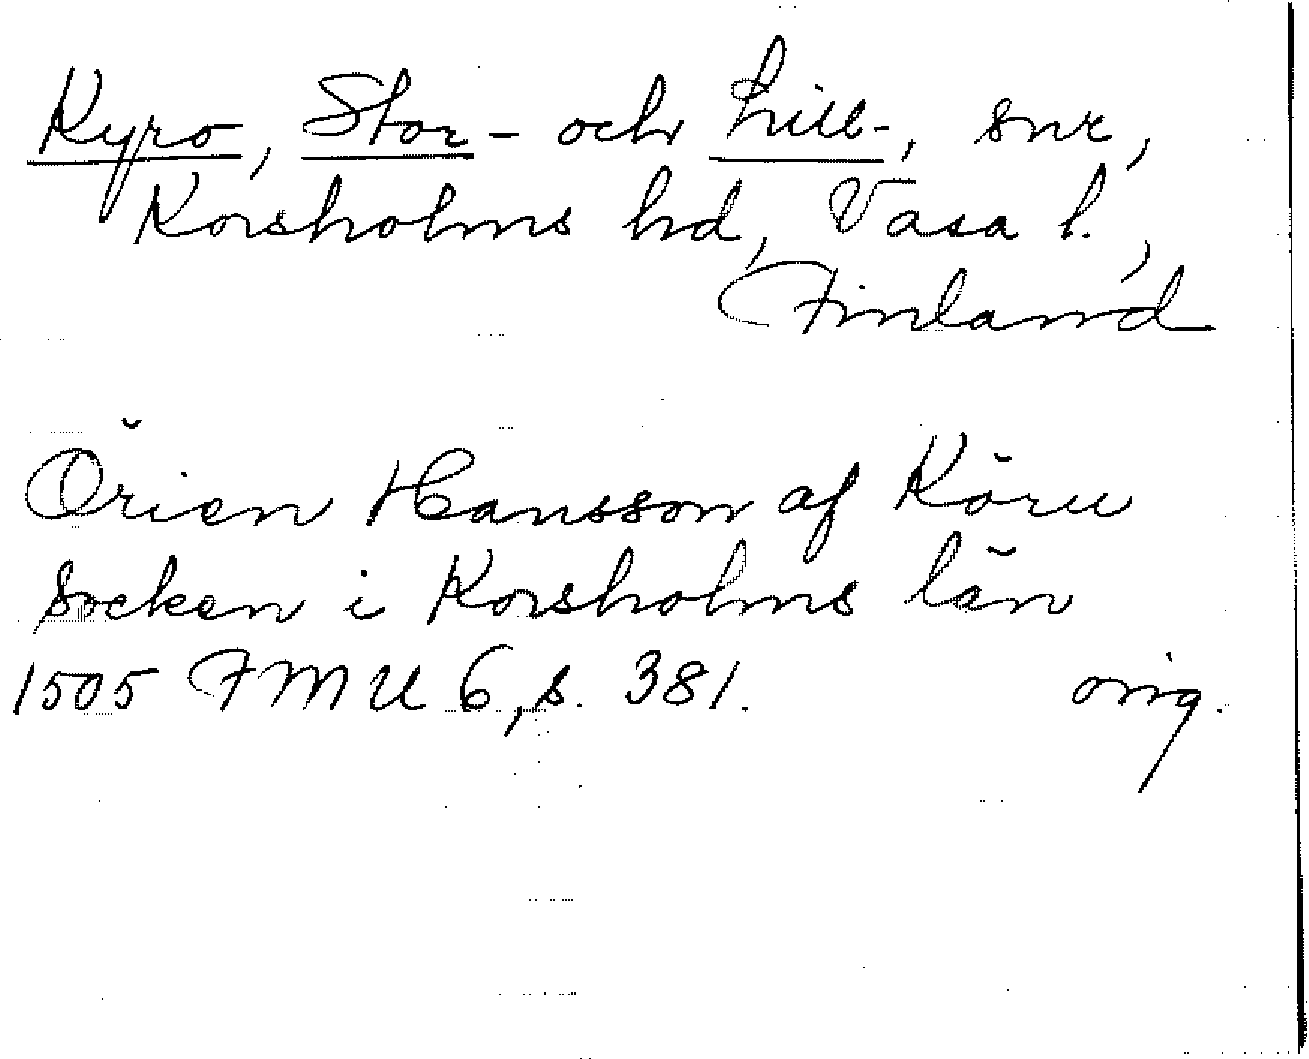 Kyro, Stor- och Lill-, snr,
Korsholms hd, Vasa l.,
Finland
Örien Hansson af Köru
Socken i Korsholms län
1505 FMU 6, s. 381. orig.